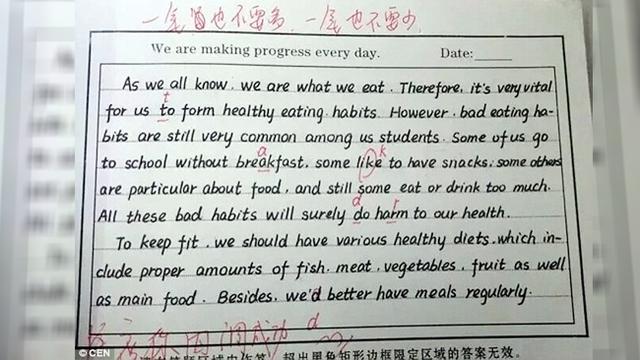 一笔画也不要多，一笔也不要少
We are making progress every day. Date:
As we all know, we are what we eat. Therefore, it's very vital
t
for us to form healthy eating habits. However, bad eating ha-
bits are still very common among us students. Some of us go
a k
to school without breakfast, some like to have snacks, some others
are particular about food, and still some eat or drink too much.
d r
All these bad habits will surely do harm to our health.
To keep fit, we should have various healthy diets, which in-
clude proper amounts of fish, meat, vegetables, fruit as well
as main food. Besides, we'd better have meals regularly.
d
成功
© CEN
超出黑色矩形边框限定区域的答案无效。